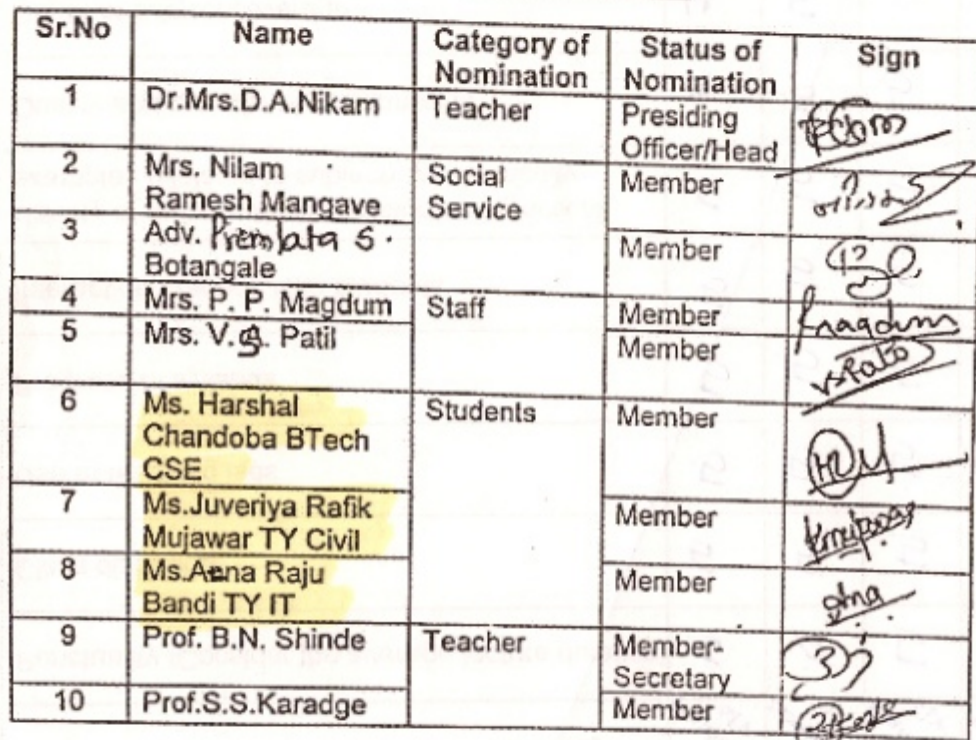 Sr.No Name Category of Nomination Status of Nomination Sign
1 Dr.Mrs.D.A.Nikam Teacher Presiding Officer/Head
2 Mrs. Nilam Ramesh Mangave Social Service Member
3 Adv. Premlata S. Botangale Member
4 Mrs. P. P. Magdum Staff Member Pmagdum
5 Mrs. V.S. Patil Member
6 Ms. Harshal Chandoba BTech CSE Students Member
7 Ms.Juveriya Rafik Mujawar TY Civil Member
8 Ms.Anna Raju Bandi TY IT Member
9 Prof. B.N. Shinde Teacher Member-Secretary
10 Prof.S.S.Karadge Member